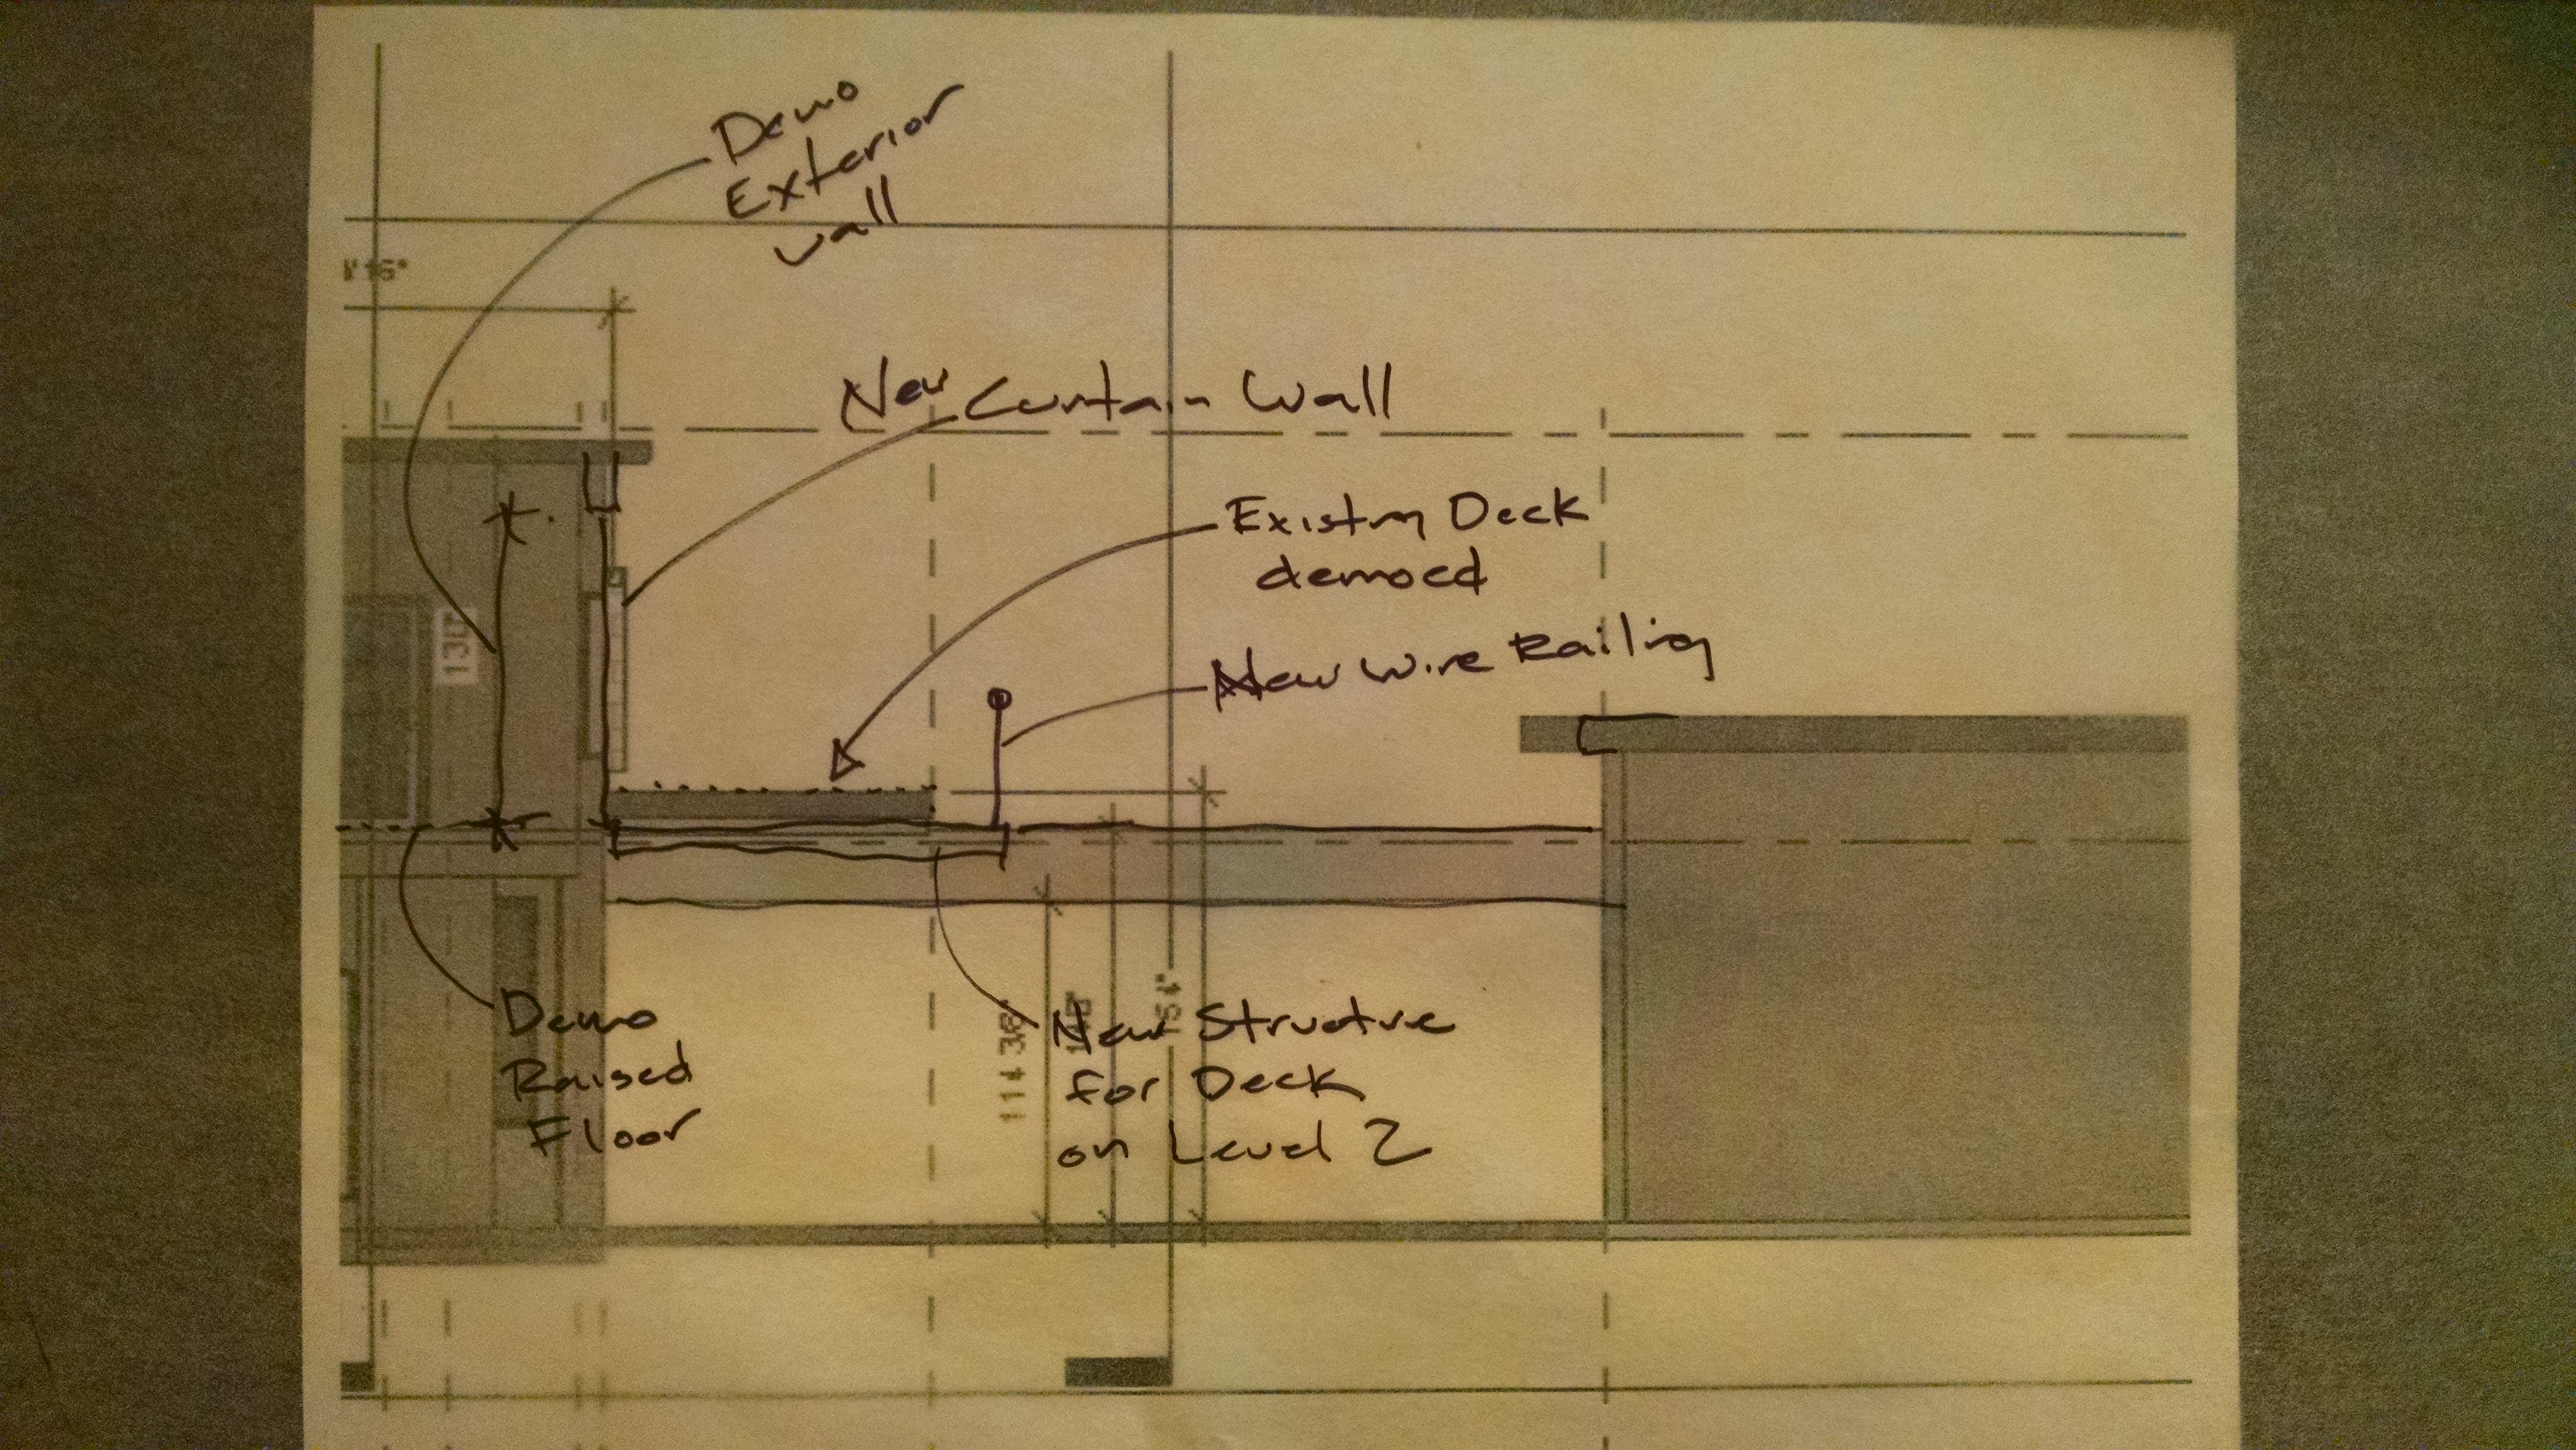 Demo
Exterior
wall
New Curtain Wall
Existing Deck
demoed
New Wire Railing
Demo
Raised
Floor
New Structure
for Deck
on Level 2